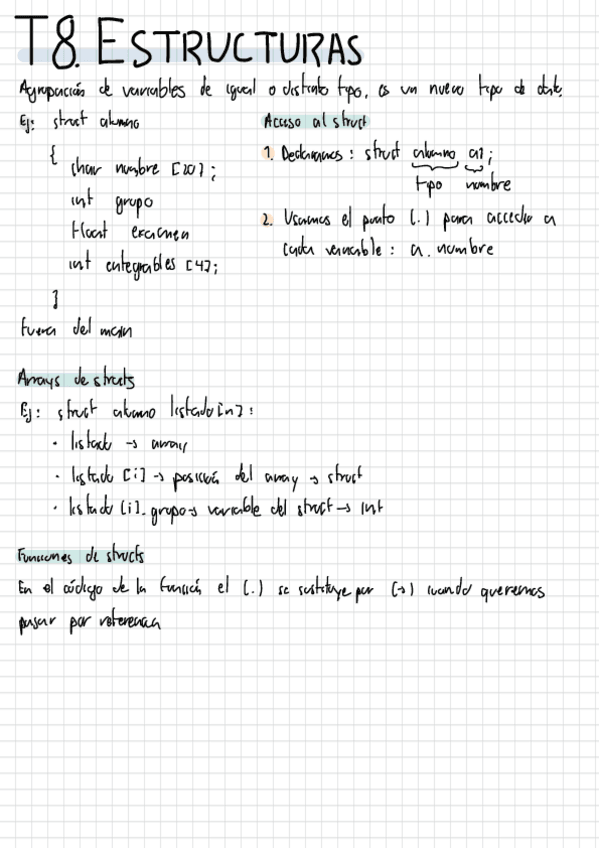 T8. ESTRUCTURAS
Agrupación de variables de igual o distinto tipo, es un nuevo tipo de dato.
Ej: struct alumno
{
char nombre [20];
int grupo
float examen
int entregables [4];
}
Fuera del main
Acceso al struct
1. Declaramos: struct alumno a1;
tipo nombre
2. Usamos el punto (.) para acceder a
cada variable: a.nombre
Arrays de structs
Ej: struct alumno listado[n]:
· listado → array
· listado [i] → posición del array → struct
· listado [i].grupo → variable del struct → int
Funciones de structs
En el código de la función el (.) se sustituye por (→) cuando queremos
pasar por referencia